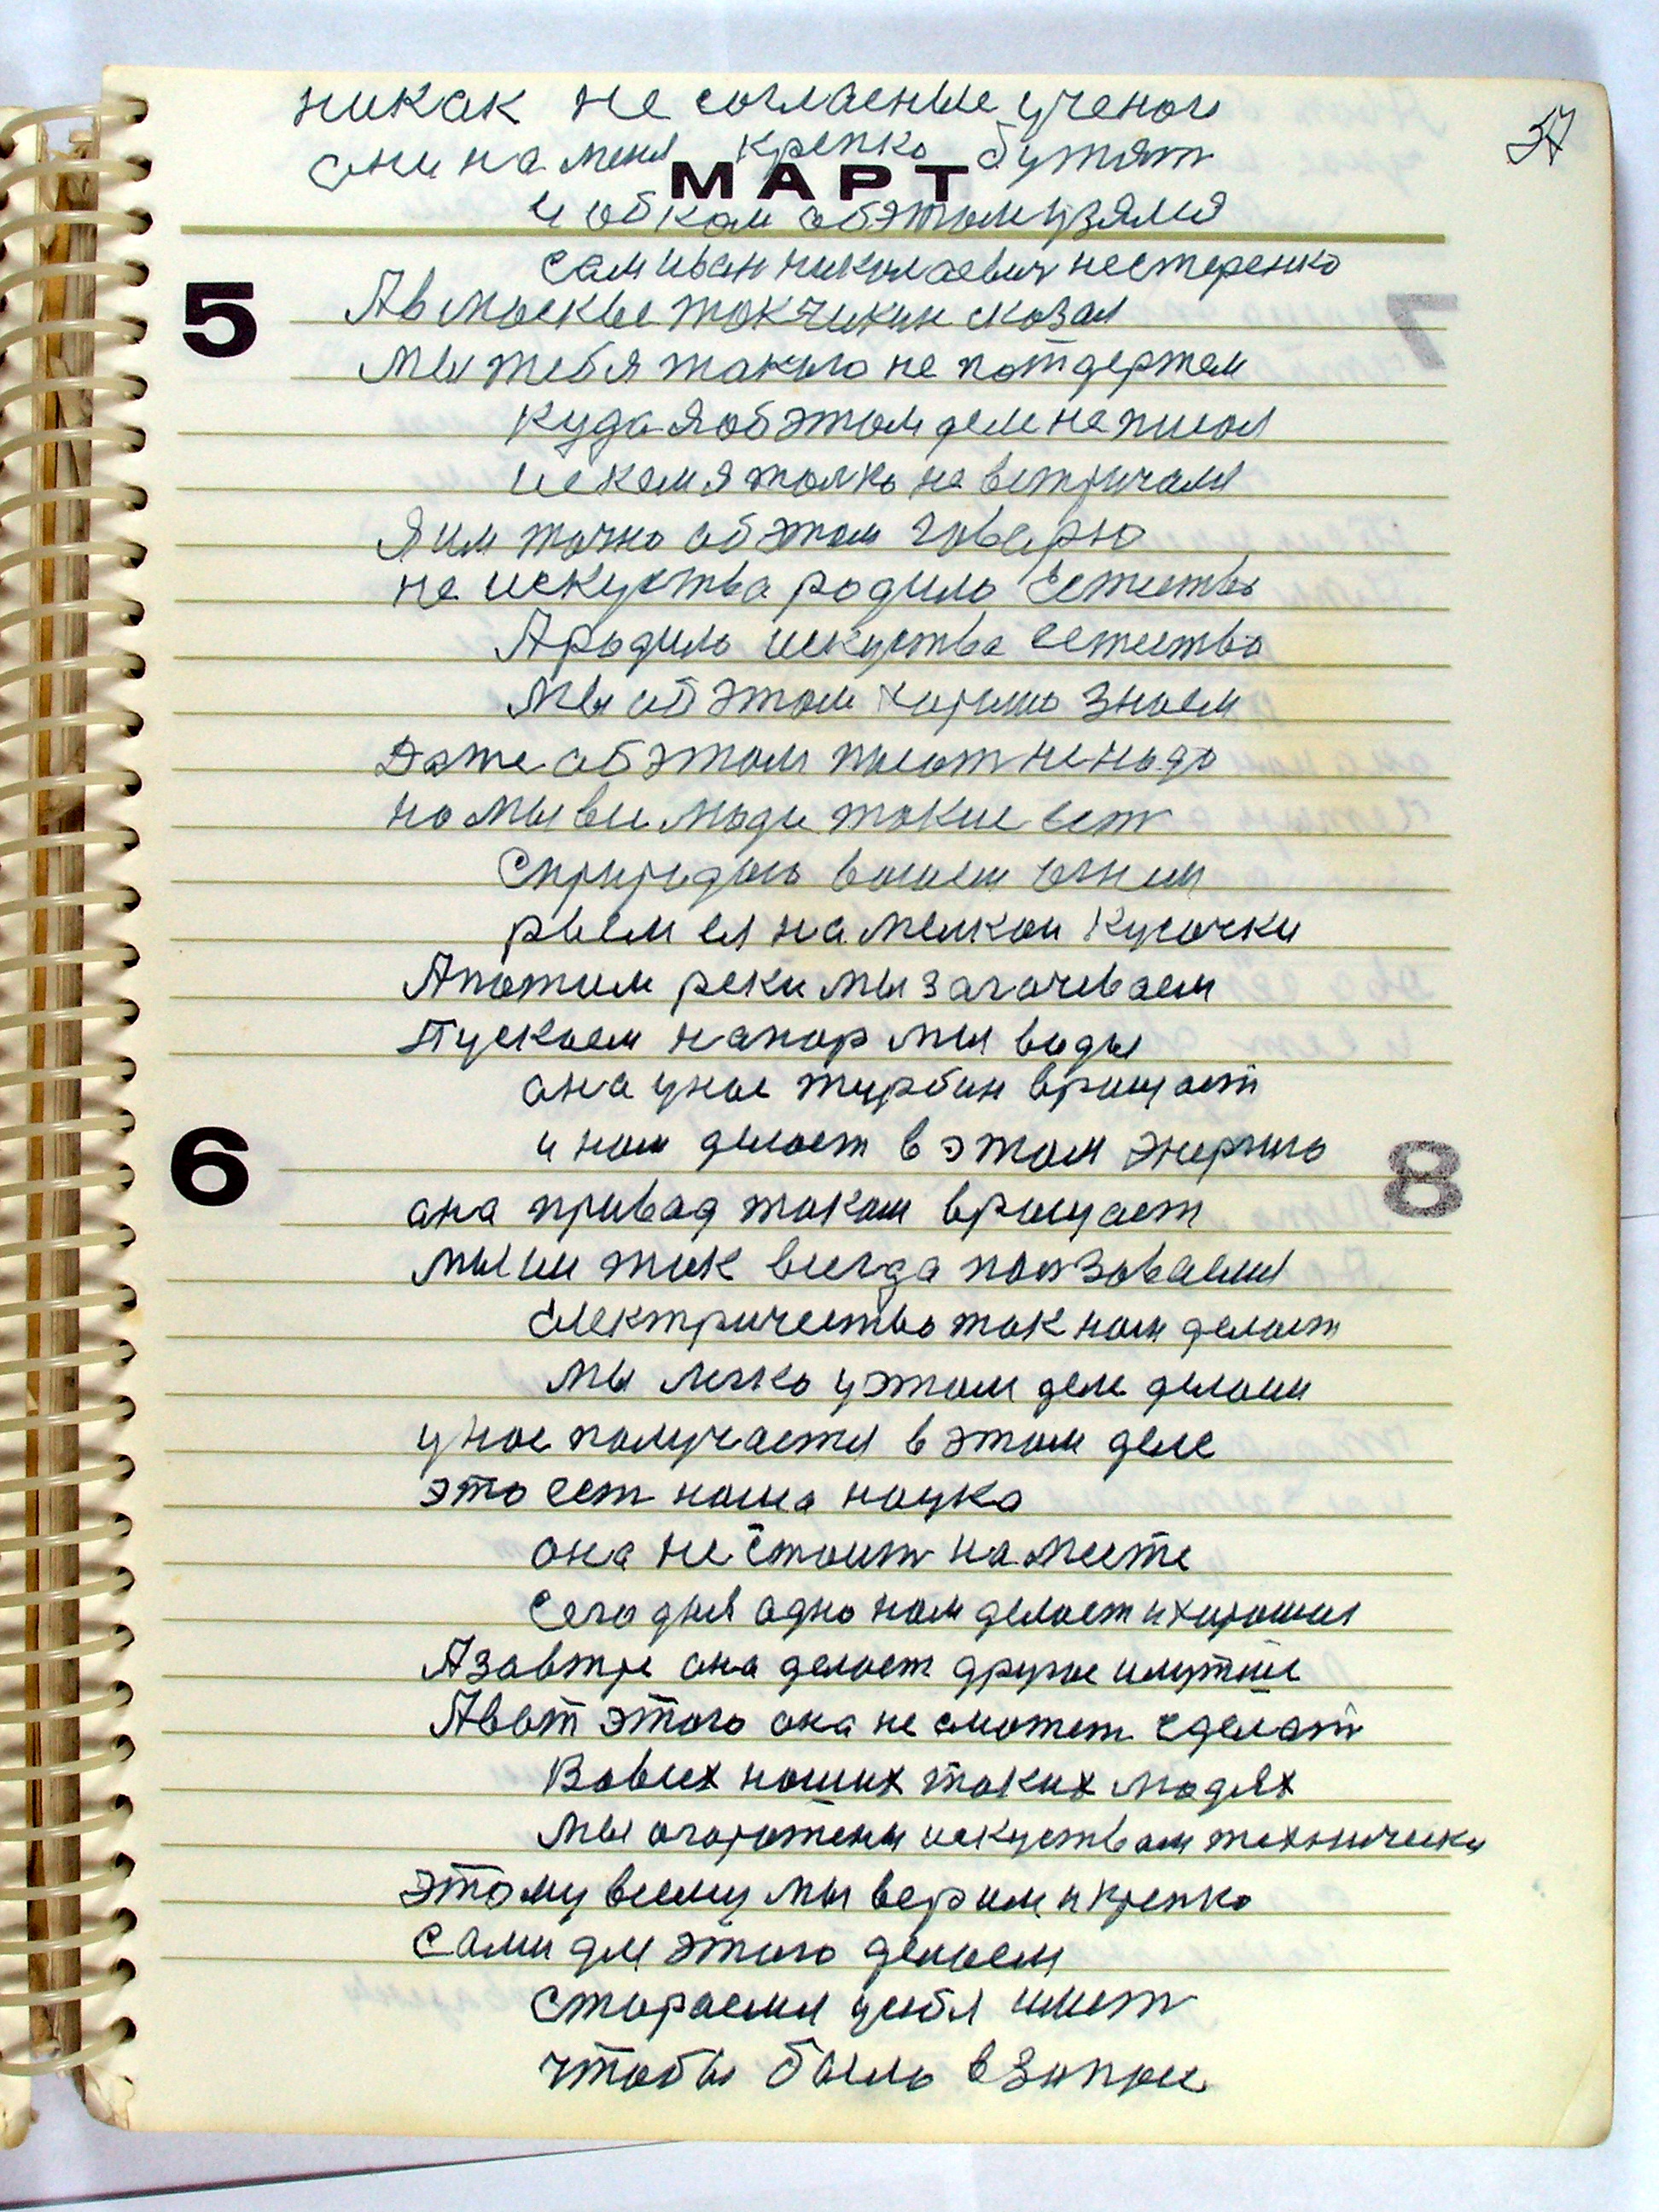 никак не согласные ученои
37
они на меня крепко бутят
МАРТ
и обком обэтом узялся
сам иван николаевич нестеренко
5
7
Авмоскве токчикин сказал
мы тебя такого не потдержем
куда я обэтом деле не писал
искем я толко не встричался
Я им точно об этом говарю
не искуства родило Естество
А родило искуства естество
мы об этом хорошо знаем
Даже об этом писат не надо
но мы все люди такие ест
Сприродою воюем
рвем ея на мелкои кусочки
Апотом реки мы загачеваем
Пускаем напор мы воды
ана унас турбин вращает
6
и нам делает в этом энергию
8
ана привад током вращает
мы им так всегда ползоваемся
Електричество так нам делает
мы легко у этом деле делаем
унас получается в этом деле
это ест наша наука
она не стоит на месте
Сегодня одно нам делает и хорошия
Азавтре она делает другое илутше
Авот этого она не сможет сделат
Вовсех наших таких людях
мы огорожены искуством технически
этому всему мы верим и крепко
сами для этого делаем
стораемся усебя имет
чтобы было взапасе